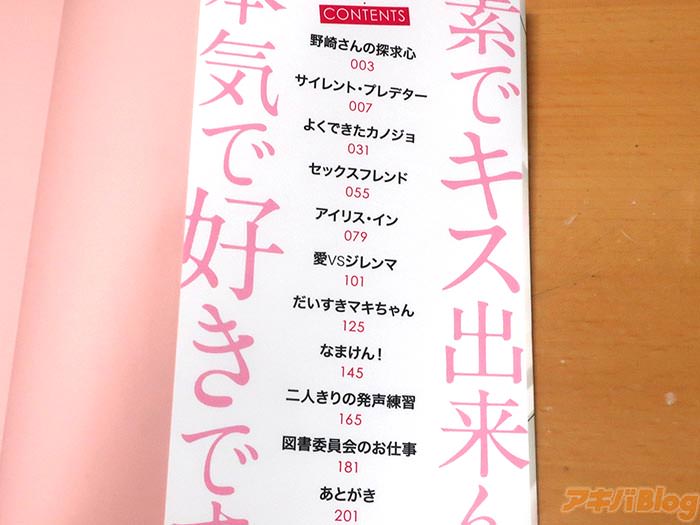 CONTENTS
野崎さんの探求心
003
サイレント・プレデター
007
よくできたカノジョ
031
セックスフレンド
055
アイリス・イン
079
愛VSジレンマ
101
だいすきマキちゃん
125
なまけん!
145
二人きりの発声練習
165
図書委員会のお仕事
181
あとがき
201
素でキス出来
本気で好きです
アキバBlog